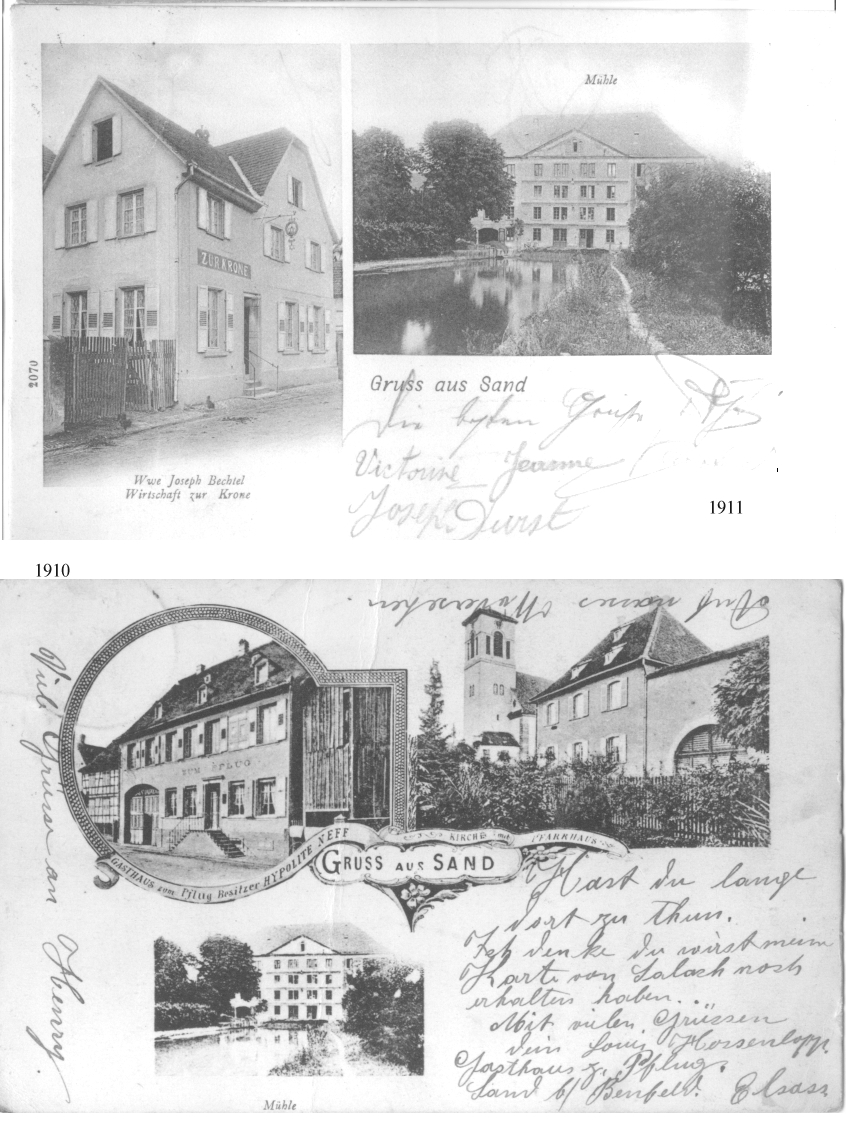 Mühle
ZUR KRONE
2070
Gruss aus Sand
Die besten Grüße
Victorine Jeanne
Joseph Durst
Wwe Joseph Bechtel
Wirtschaft zur Krone
1911
1910
Auf
Viele Grüsse an Henry.
ZUM PFLUG
KIRCHE mit PFARRHAUS
GASTHAUS zum Pflug Besitzer HYPOLITE NEFF
GRUSS AUS SAND
Hast du lange
dort zu thun.
Ich denke du wirst meine
Karte von Salach noch
erhalten haben.
Mit vielen Grüssen
dein Louis
Gasthaus z. Pflug.
Sand b/ Benfeld. Elsass
Mühle